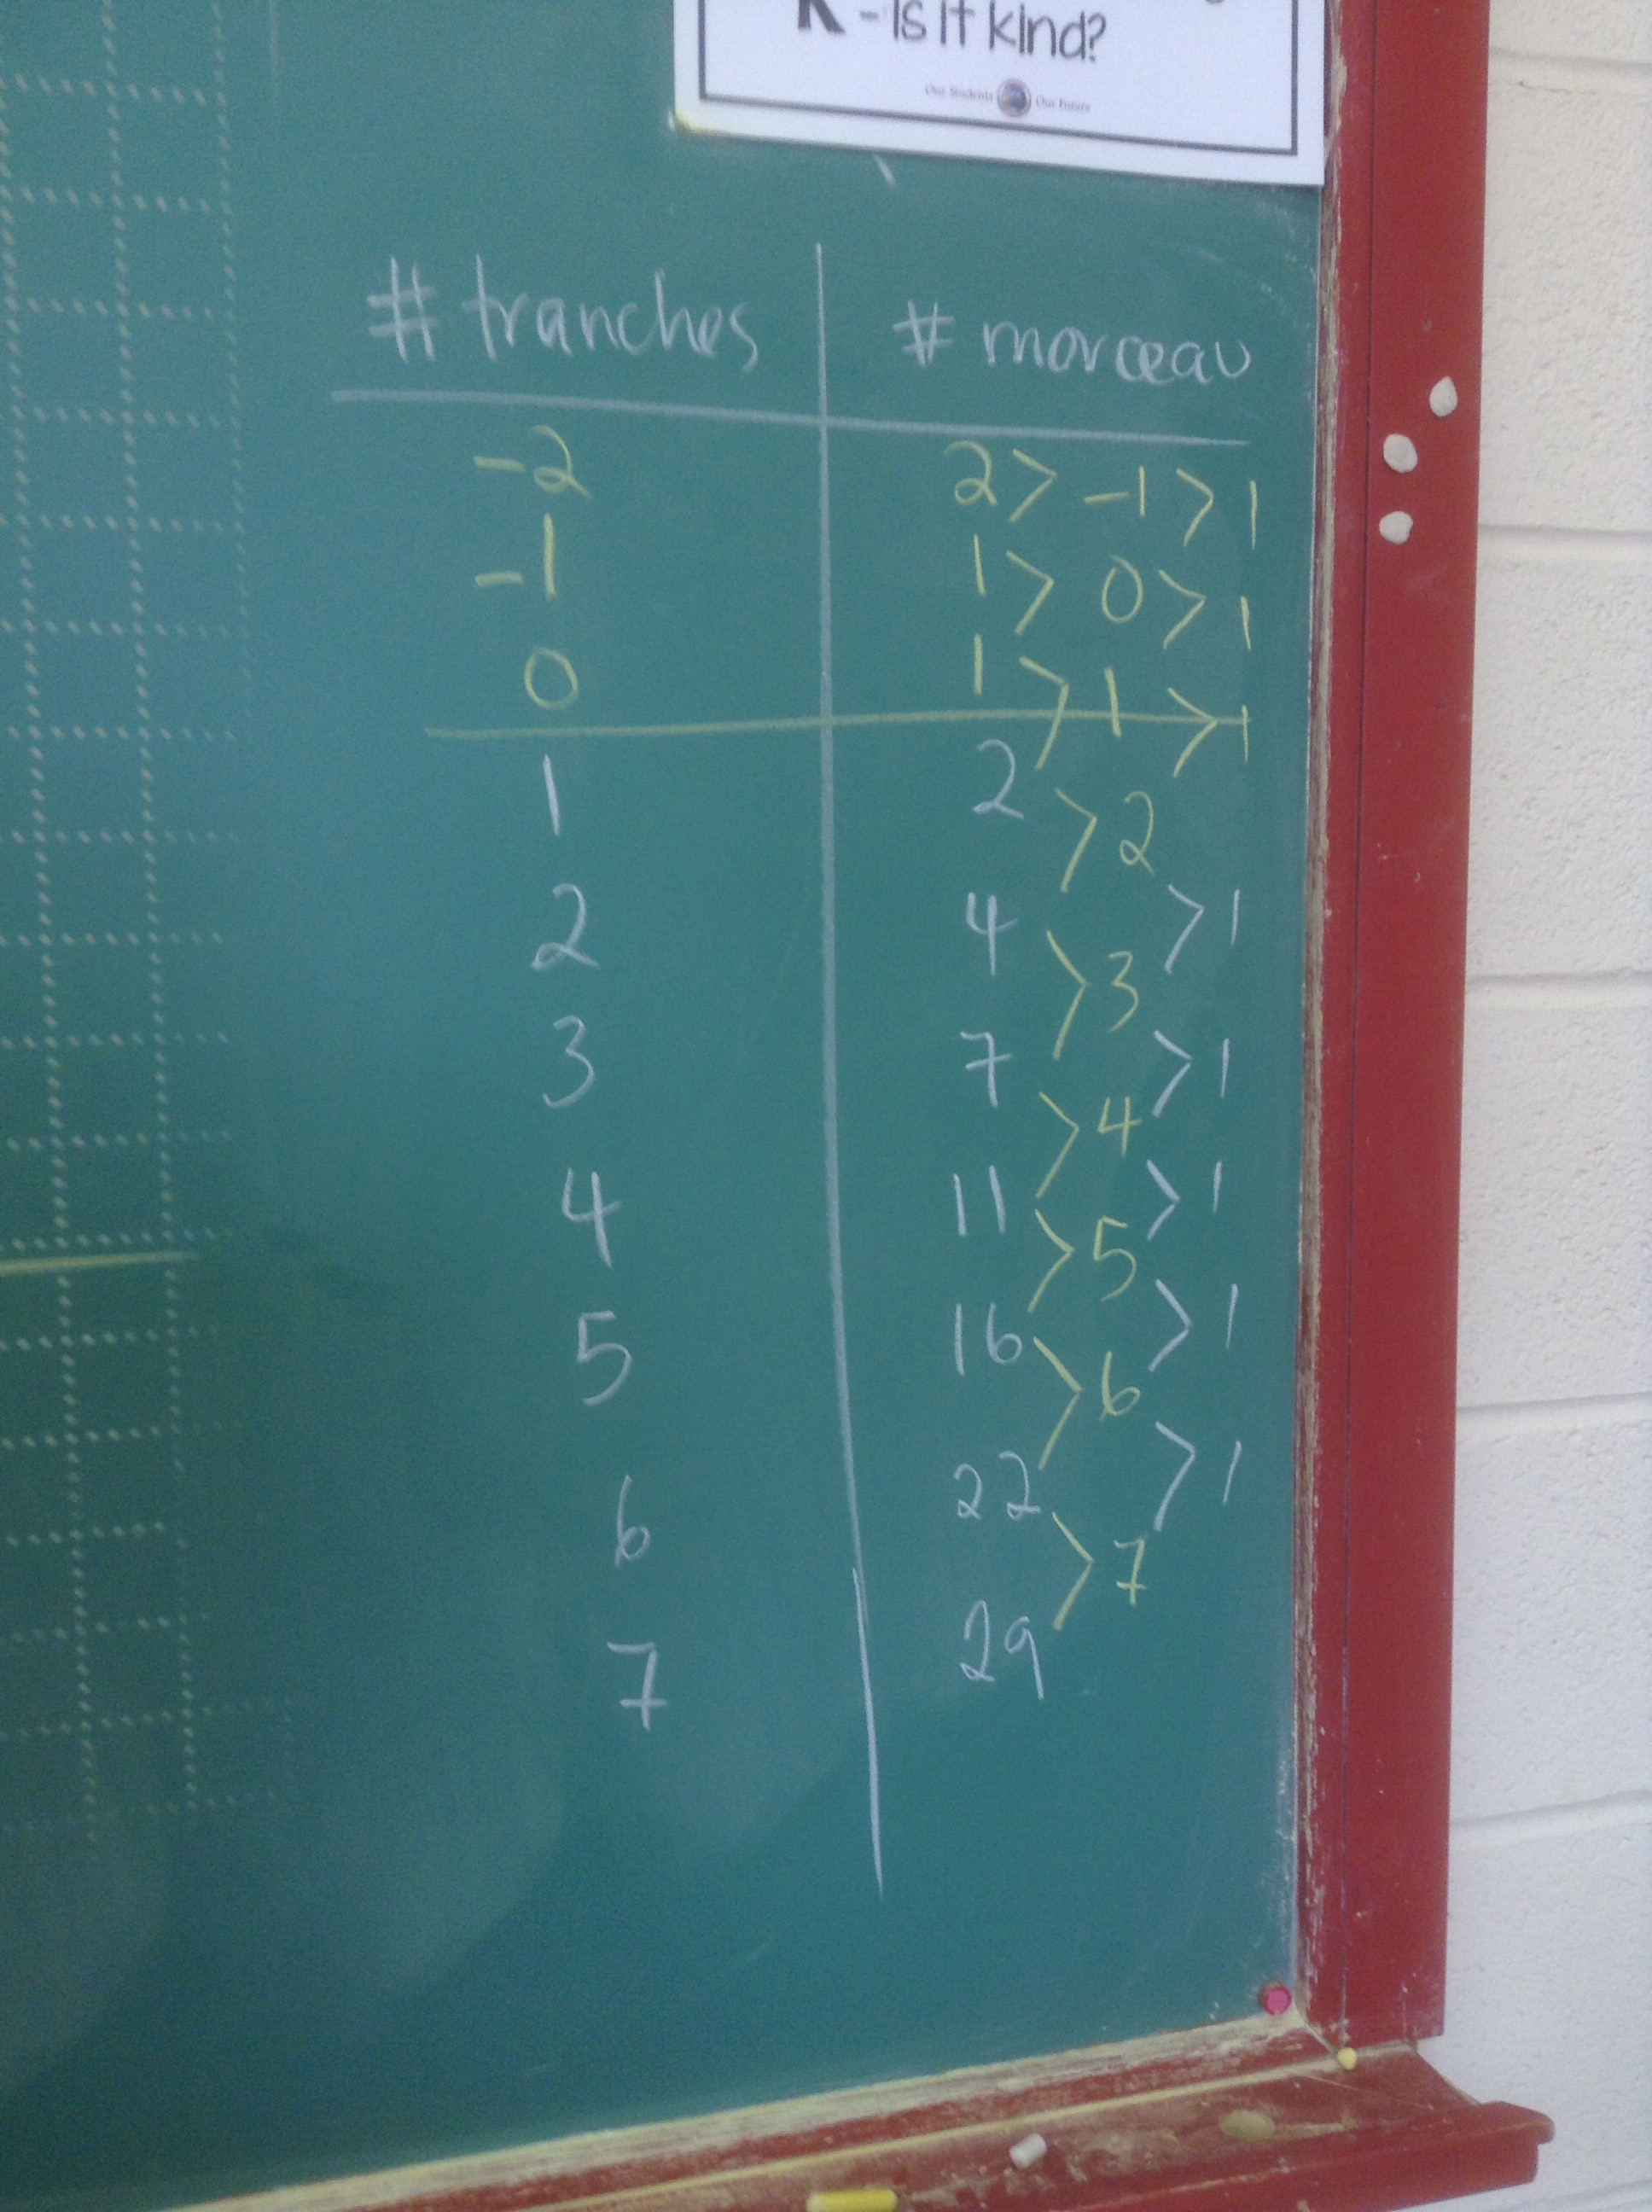 K - Is it kind?
Our Students Our Future
# tranches # morceau
-2 2 > -1 > 1
-1 1 > 0 > 1
0 1 > 1 > 1
1 2
> 2
2 4 > 1
> 3
3 7 > 1
> 4
4 11 > 1
> 5
5 16 > 1
> 6
6 22 > 1
> 7
7 29